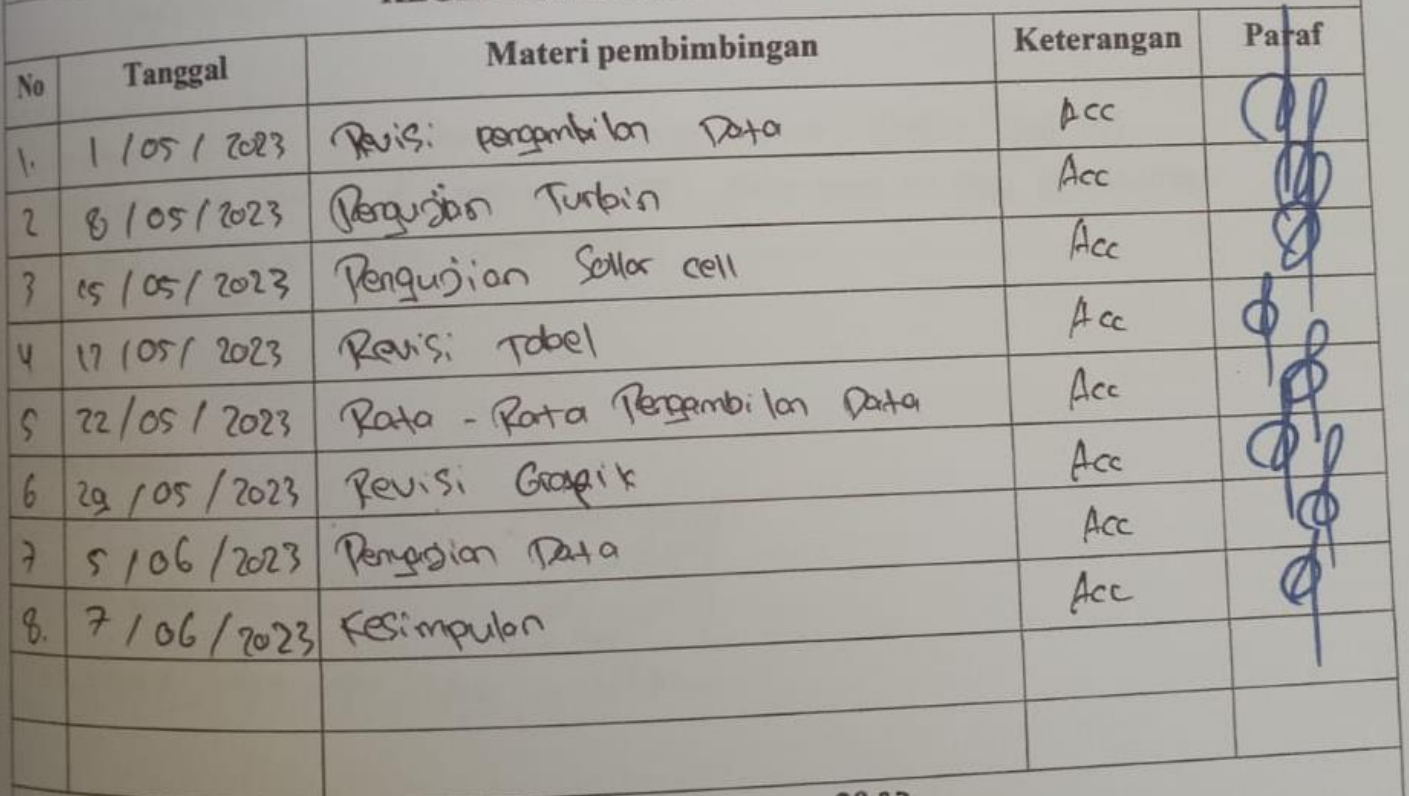 No Tanggal Materi pembimbingan Keterangan Paraf
1. 1/05/2023 Revisi pengambilan Data Acc
2 8/05/2023 Pengujian Turbin Acc
3 15/05/2023 Pengujian Sollar cell Acc
4 17/05/2023 Revisi Tabel Acc
5 22/05/2023 Rata - Rata Pengambilan Data Acc
6 29/05/2023 Revisi Grapik Acc
7 5/06/2023 Penyajian Data Acc
8. 7/06/2023 Kesimpulan Acc